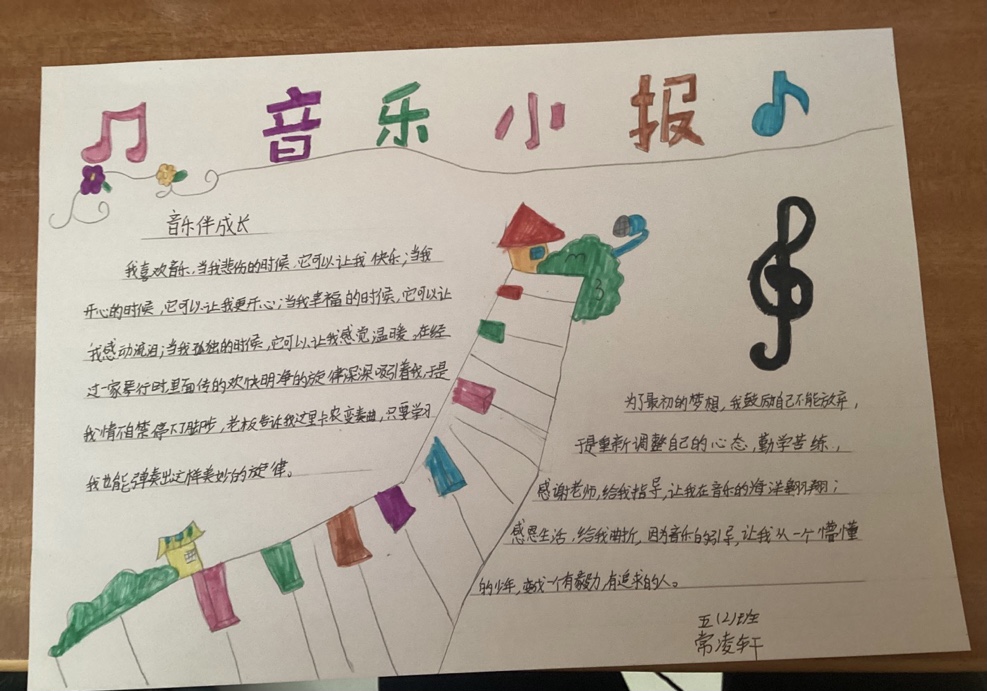 音乐小报
音乐伴成长
我喜欢音乐,当我悲伤的时候,它可以让我快乐;当我
开心的时候,它可以让我更开心;当我幸福的时候,它可以让
我感动流泪;当我孤独的时候,它可以让我感觉温暖。在经
过一家琴行时里面传的欢快明净的旋律深深吸引着我,于是
我情不自禁停下脚步,老板告诉我这里卡农变奏曲,只要学习
我也能弹奏出这样美妙的旋律。
为了最初的梦想,我鼓励自己不能放弃,
于是重新调整自己的心态,勤学苦练,
感谢老师,给我指导,让我在音乐的海洋翱翔;
感恩生活,给我曲折,因为音乐的引导,让我从一个懵懂
的少年,变成一个有毅力,有追求的人。
五(2)班
常凌轩